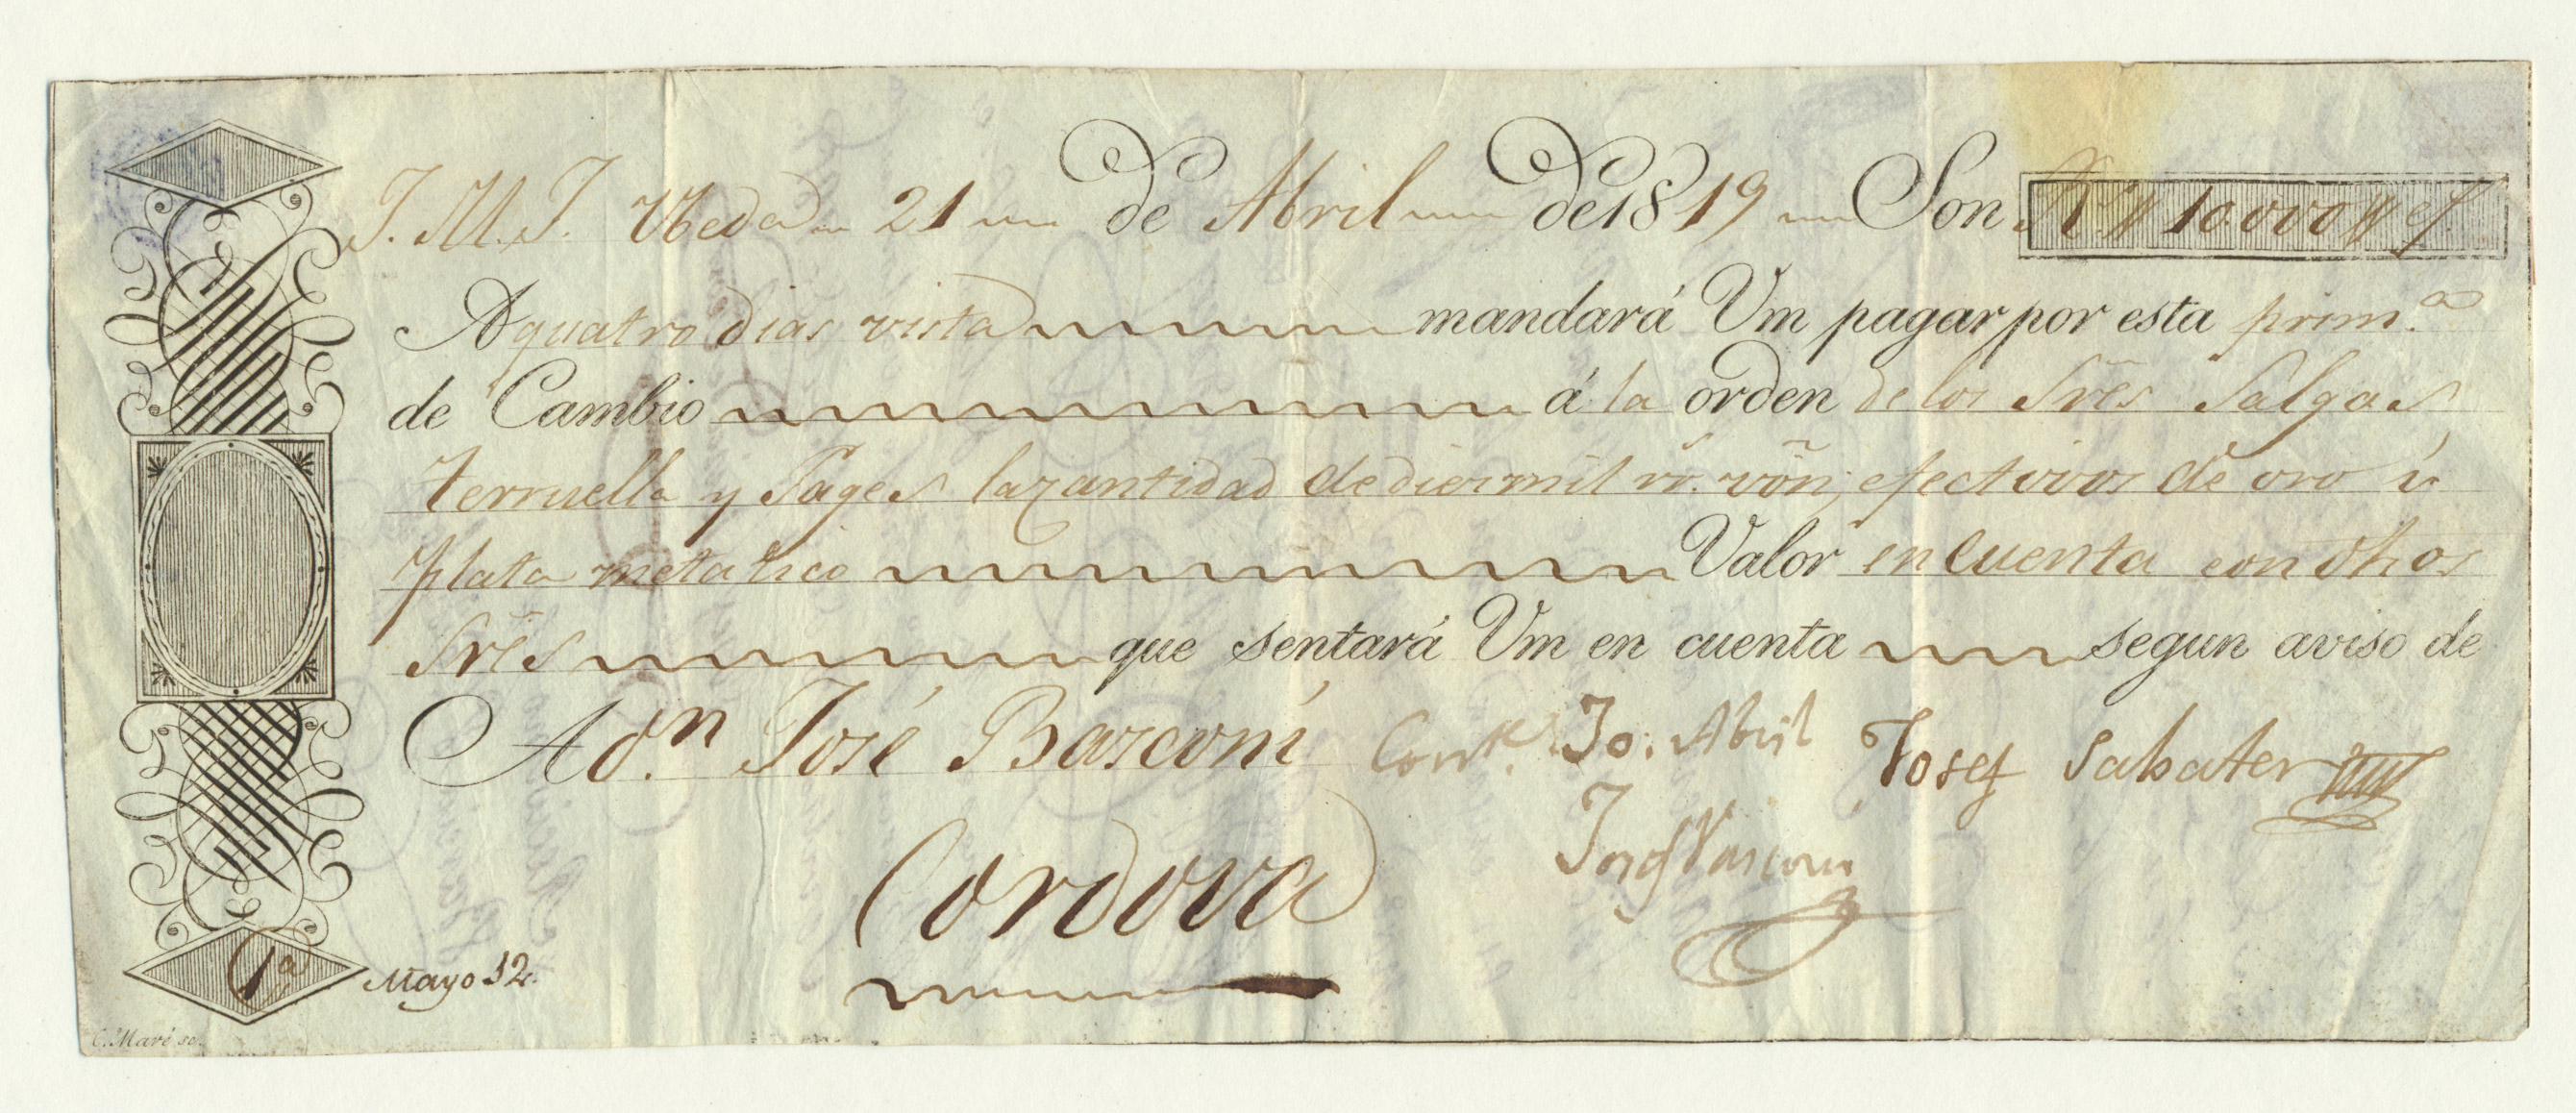 J. M. J. Ubeda 21 de Abril de 1819 Son Rs 10.000 ef.
A quatro dias vista mandará Vm pagar por esta prim.a
de Cambio á la orden de los Sres Salgas
Terruella y Pages la cantidad de diez mil rs. von; efectivos de oro ú
plata metalico Valor en cuenta con dhos
Sres que sentará Vm en cuenta segun aviso de
A dn. José Basconi
Josef Sabater
30. Abril
Josef Vasconi
Cordova
1a
Mayo 12.
C. Maré sc.